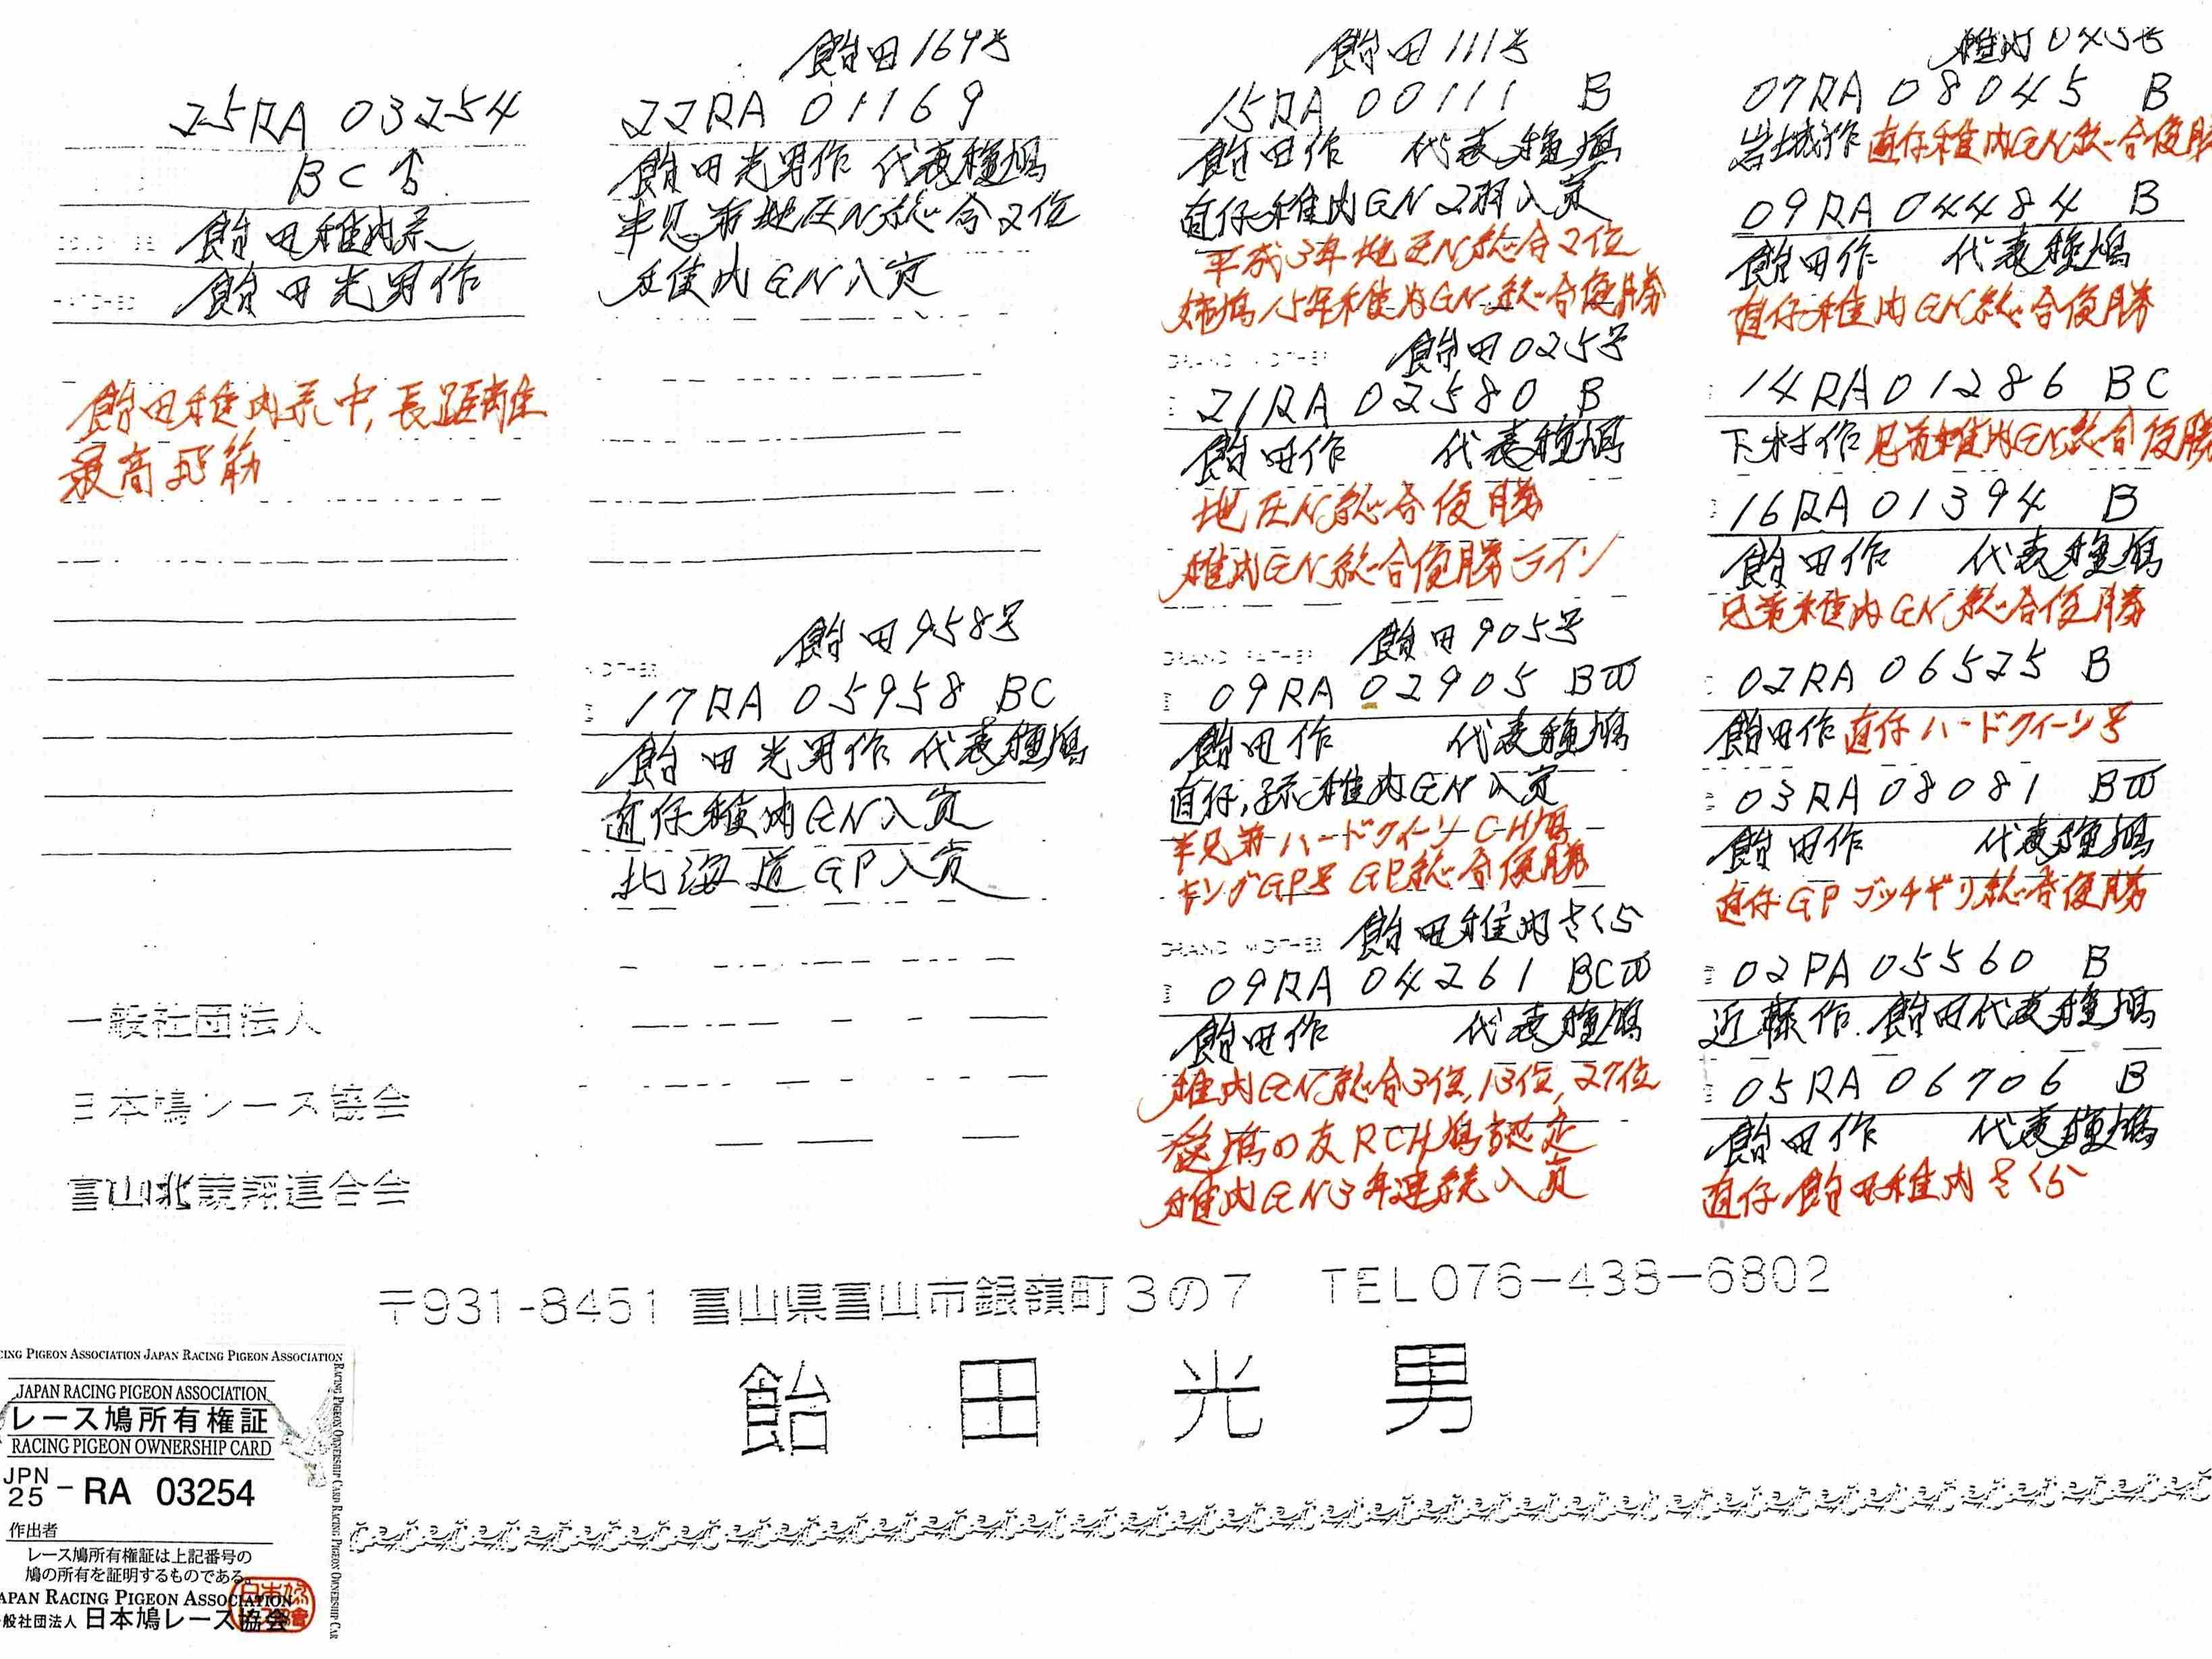 25RA 03254
BC ♂
飴田稚内系
飴田光男作
飴田稚内系中,長距離
最高飛筋
一般社団法人
日本鳩レース協会
富山北競翔連合会
飴田169号
22RA 01169
飴田光男作 代表種鳩
半兄弟地区N総合2位
稚内GN入賞
飴田958号
MOTHER
17RA 05958 BC
飴田光男作 代表種鳩
直仔稚内GN入賞
北海道GP入賞
飴田111号
15RA 00111 B
飴田作 代表種鳩
直仔稚内GN2羽入賞
平成3年地区N総合2位
姉鳩15年稚内GN総合優勝
GRAND MOTHER
飴田025号
21RA 02580 B
飴田作 代表種鳩
地区N総合優勝
稚内GN総合優勝ライン
GRAND FATHER
飴田905号
09RA 02905 BW
飴田作 代表種鳩
直仔,孫稚内GN入賞
半兄弟ハードクイーンCH鳩
キングGP号 GP総合優勝
GRAND MOTHER
飴田稚内さくら
09RA 04261 BCW
飴田作 代表種鳩
稚内GN総合3位,13位,27位
愛鳩の友RCH鳩認定
稚内GN3年連続入賞
稚内045号
07RA 08045 B
岩城作 直仔稚内GN総合優勝
09RA 04484 B
飴田作 代表種鳩
直仔稚内GN総合優勝
14RA 01286 BC
下村作 兄弟稚内GN総合優勝
16RA 01394 B
飴田作 代表種鳩
兄弟稚内GN総合優勝
02RA 06525 B
飴田作 直仔ハードクイーン号
03RA 08081 BW
飴田作 代表種鳩
直仔GPブッチギリ総合優勝
02PA 05560 B
近藤作.飴田代表種鳩
05RA 06706 B
飴田作 代表種鳩
直仔飴田稚内さくら
〒931-8451 富山県富山市銀嶺町3の7 TEL076-438-6802
飴田光男
CING PIGEON ASSOCIATION JAPAN RACING PIGEON ASSOCIATION
RACING PIGEON OWNERSHIP CARD RACING PIGEON OWNERSHIP CAR
JAPAN RACING PIGEON ASSOCIATION
レース鳩所有権証
RACING PIGEON OWNERSHIP CARD
JPN
25 - RA 03254
作出者
レース鳩所有権証は上記番号の
鳩の所有を証明するものである。
APAN RACING PIGEON ASSOCIATION
般社団法人 日本鳩レース協会